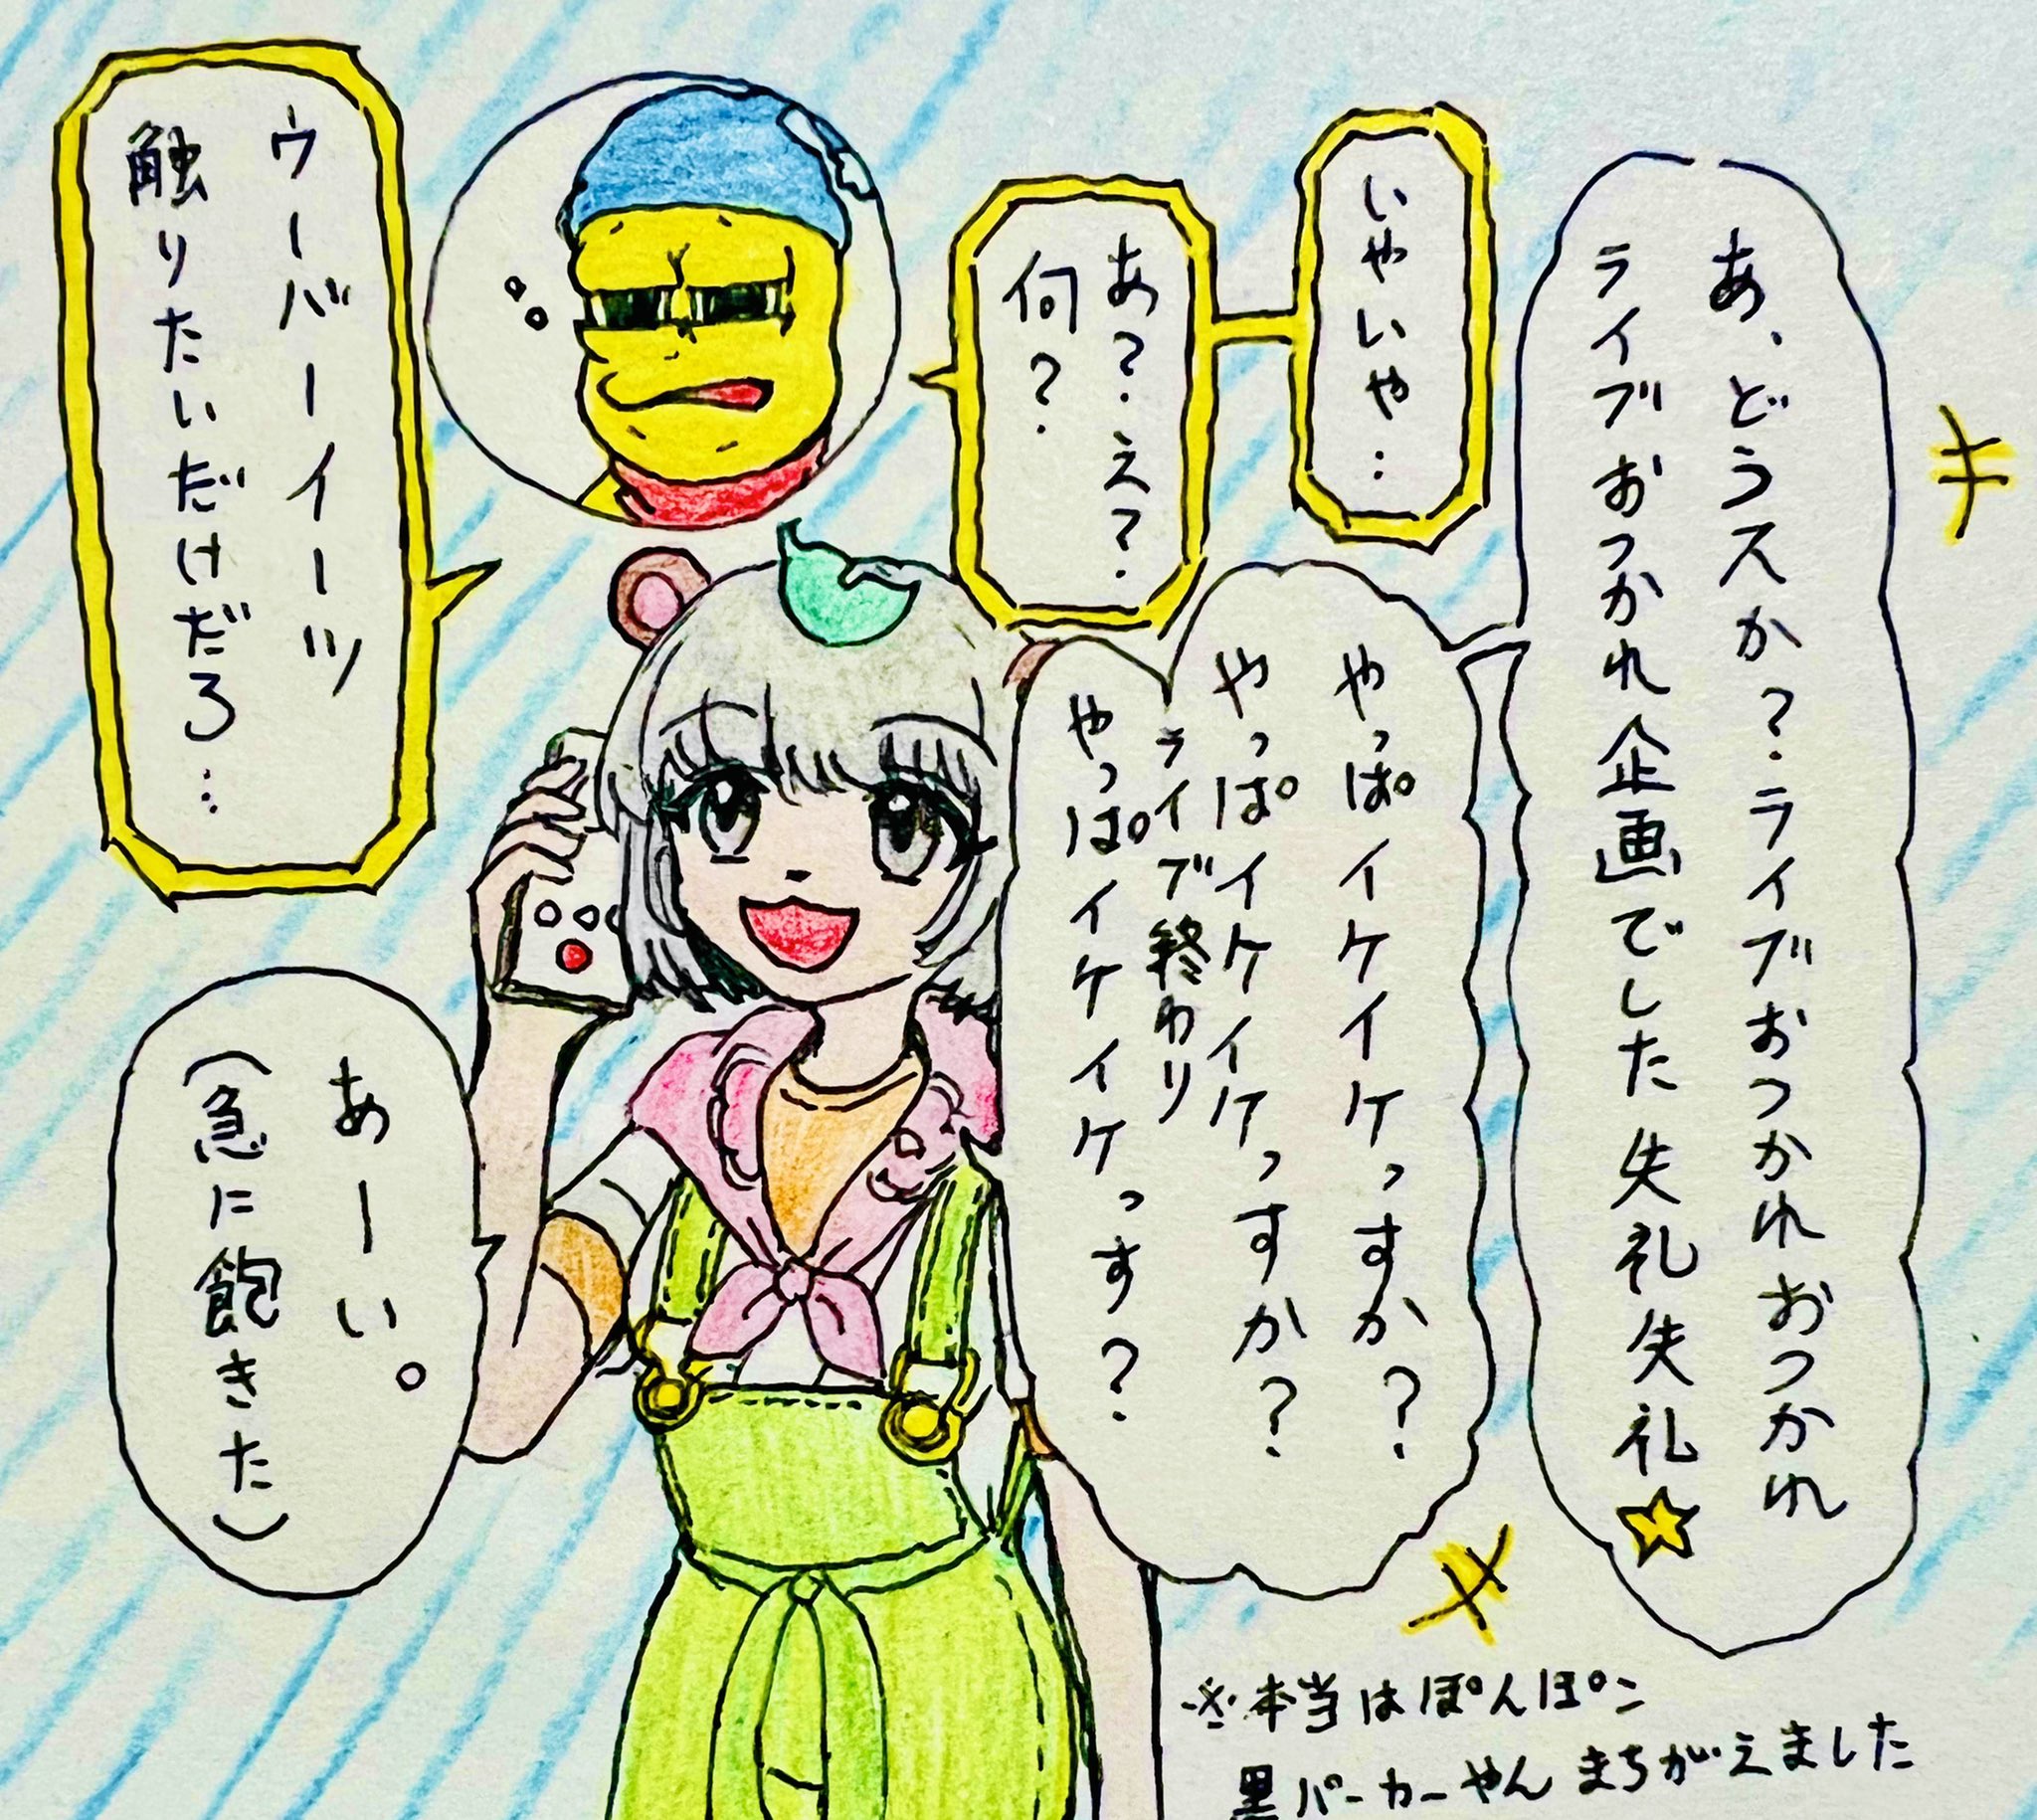 あ、どうスか？ライブおつかれおつかれ
ライブおつかれ企画でした失礼失礼☆
いやいや…
あ？え？
何？
やっぱイケイケっすか？
やっぱイケイケっすか？
ライブ終わり
やっぱイケイケっす？
ウーバーイーツ
触りたいだけだろ…
あーい。
(急に飽きた)
※本当はぽんぽこ
黒パーカーやんまちがえました